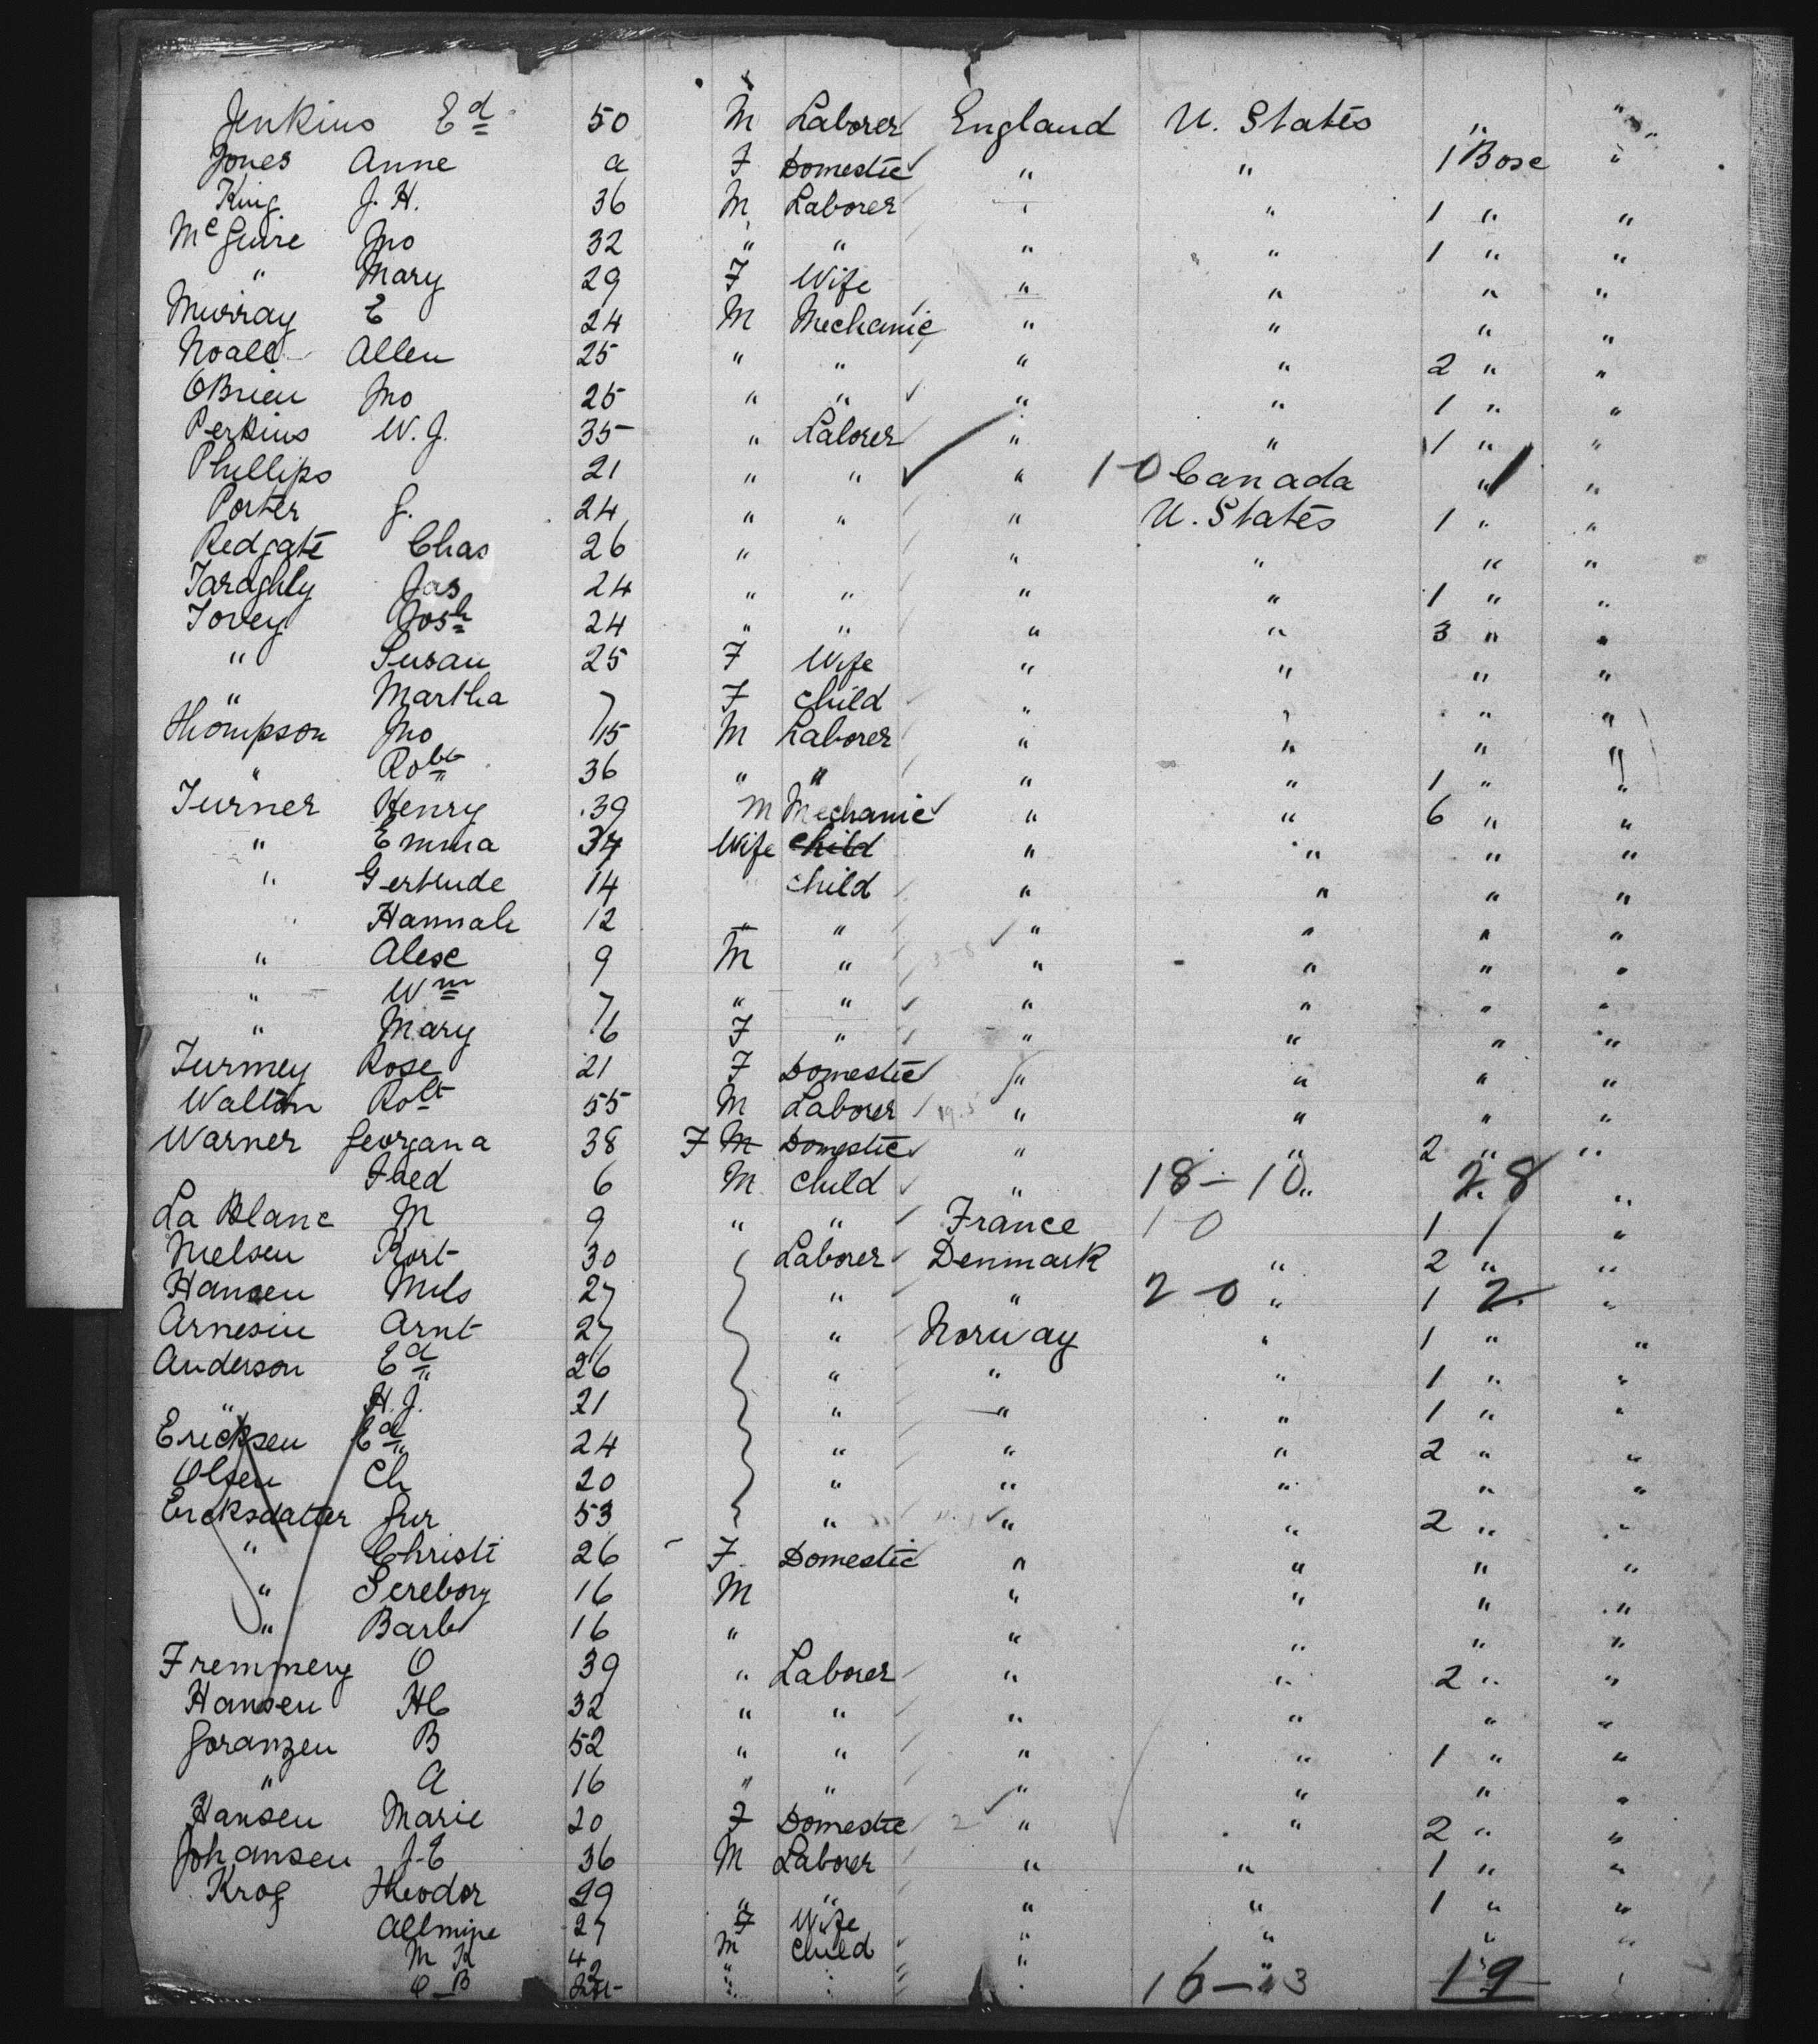 Jenkins Ed 50 M Laborer England U. States " "
Jones Anne a F Domestic " " 1 Box "
King J. H. 36 M Laborer " " 1 " "
McGuire Jno 32 " " " " 1 " "
" Mary 29 F Wife " " " "
Murray E 24 M Mechanic " " " "
Noall Allen 25 " " " " 2 " "
OBrien Jno 25 " " " " 1 " "
Perkins W. J. 35 " Laborer " " 1 " "
Phillips 21 " " " 1-0 Canada " 1 "
Porter J. 24 " " " U. States 1 " "
Redgate Chas 26 " " " " "
Jas 24 " " " " 1 " "
Tovey Josh 24 " " " " 3 " "
" Susan 25 F Wife " " " "
" Martha 7 F Child " " " "
Thompson Jno 15 M Laborer " " " "
" Robt 36 " " " " 1 " "
Turner Henry 39 M Mechanic " " 6 " "
" Emma 34 Wife Child " " " "
" Gertrude 14 Child " " " "
Hannah 12 " " " " "
" Alex 9 M " " " " "
" Wm 7 " " " " " "
" Mary 6 F " " " " "
Turmey Rose 21 F Domestic " " " "
Walton Robt 55 M Laborer " " " "
Warner Georgana 38 F M Domestic " " 2 " "
Fred 6 M Child " 18-10 " 28 "
La Blanc M 9 " " France 1-0 1 1 "
Nielsen Kort 30 Laborer Denmark " 2 " "
Hansen Nils 27 " " 2-0 " 1 2 "
Arnesin Arnt 27 " Norway " 1 " "
Anderson Ed 26 " " " 1 " "
" H. J. 21 " " " 1 " "
Ericksen Ed 24 " " " 2 " "
Olsen Ch 20 " " " " "
Ericksdatter Gur 53 " " " 2 " "
" Christi 26 F Domestic " " " "
" 16 M " " " "
" Barb 16 " " " " "
Fremmery O 39 " Laborer " " 2 " "
Hansen HC 32 " " " " " "
Goranzen B 52 " " " " 1 " "
" A 16 " " " " " "
Hansen Marie 20 F Domestic 2 " " 2 " "
Johansen J-E 36 M Laborer " " 1 " "
Krog Theodor 29 " " " " 1 " "
27 F Wife " " " "
M K 4 M Child " "
O B " " 16-3 19